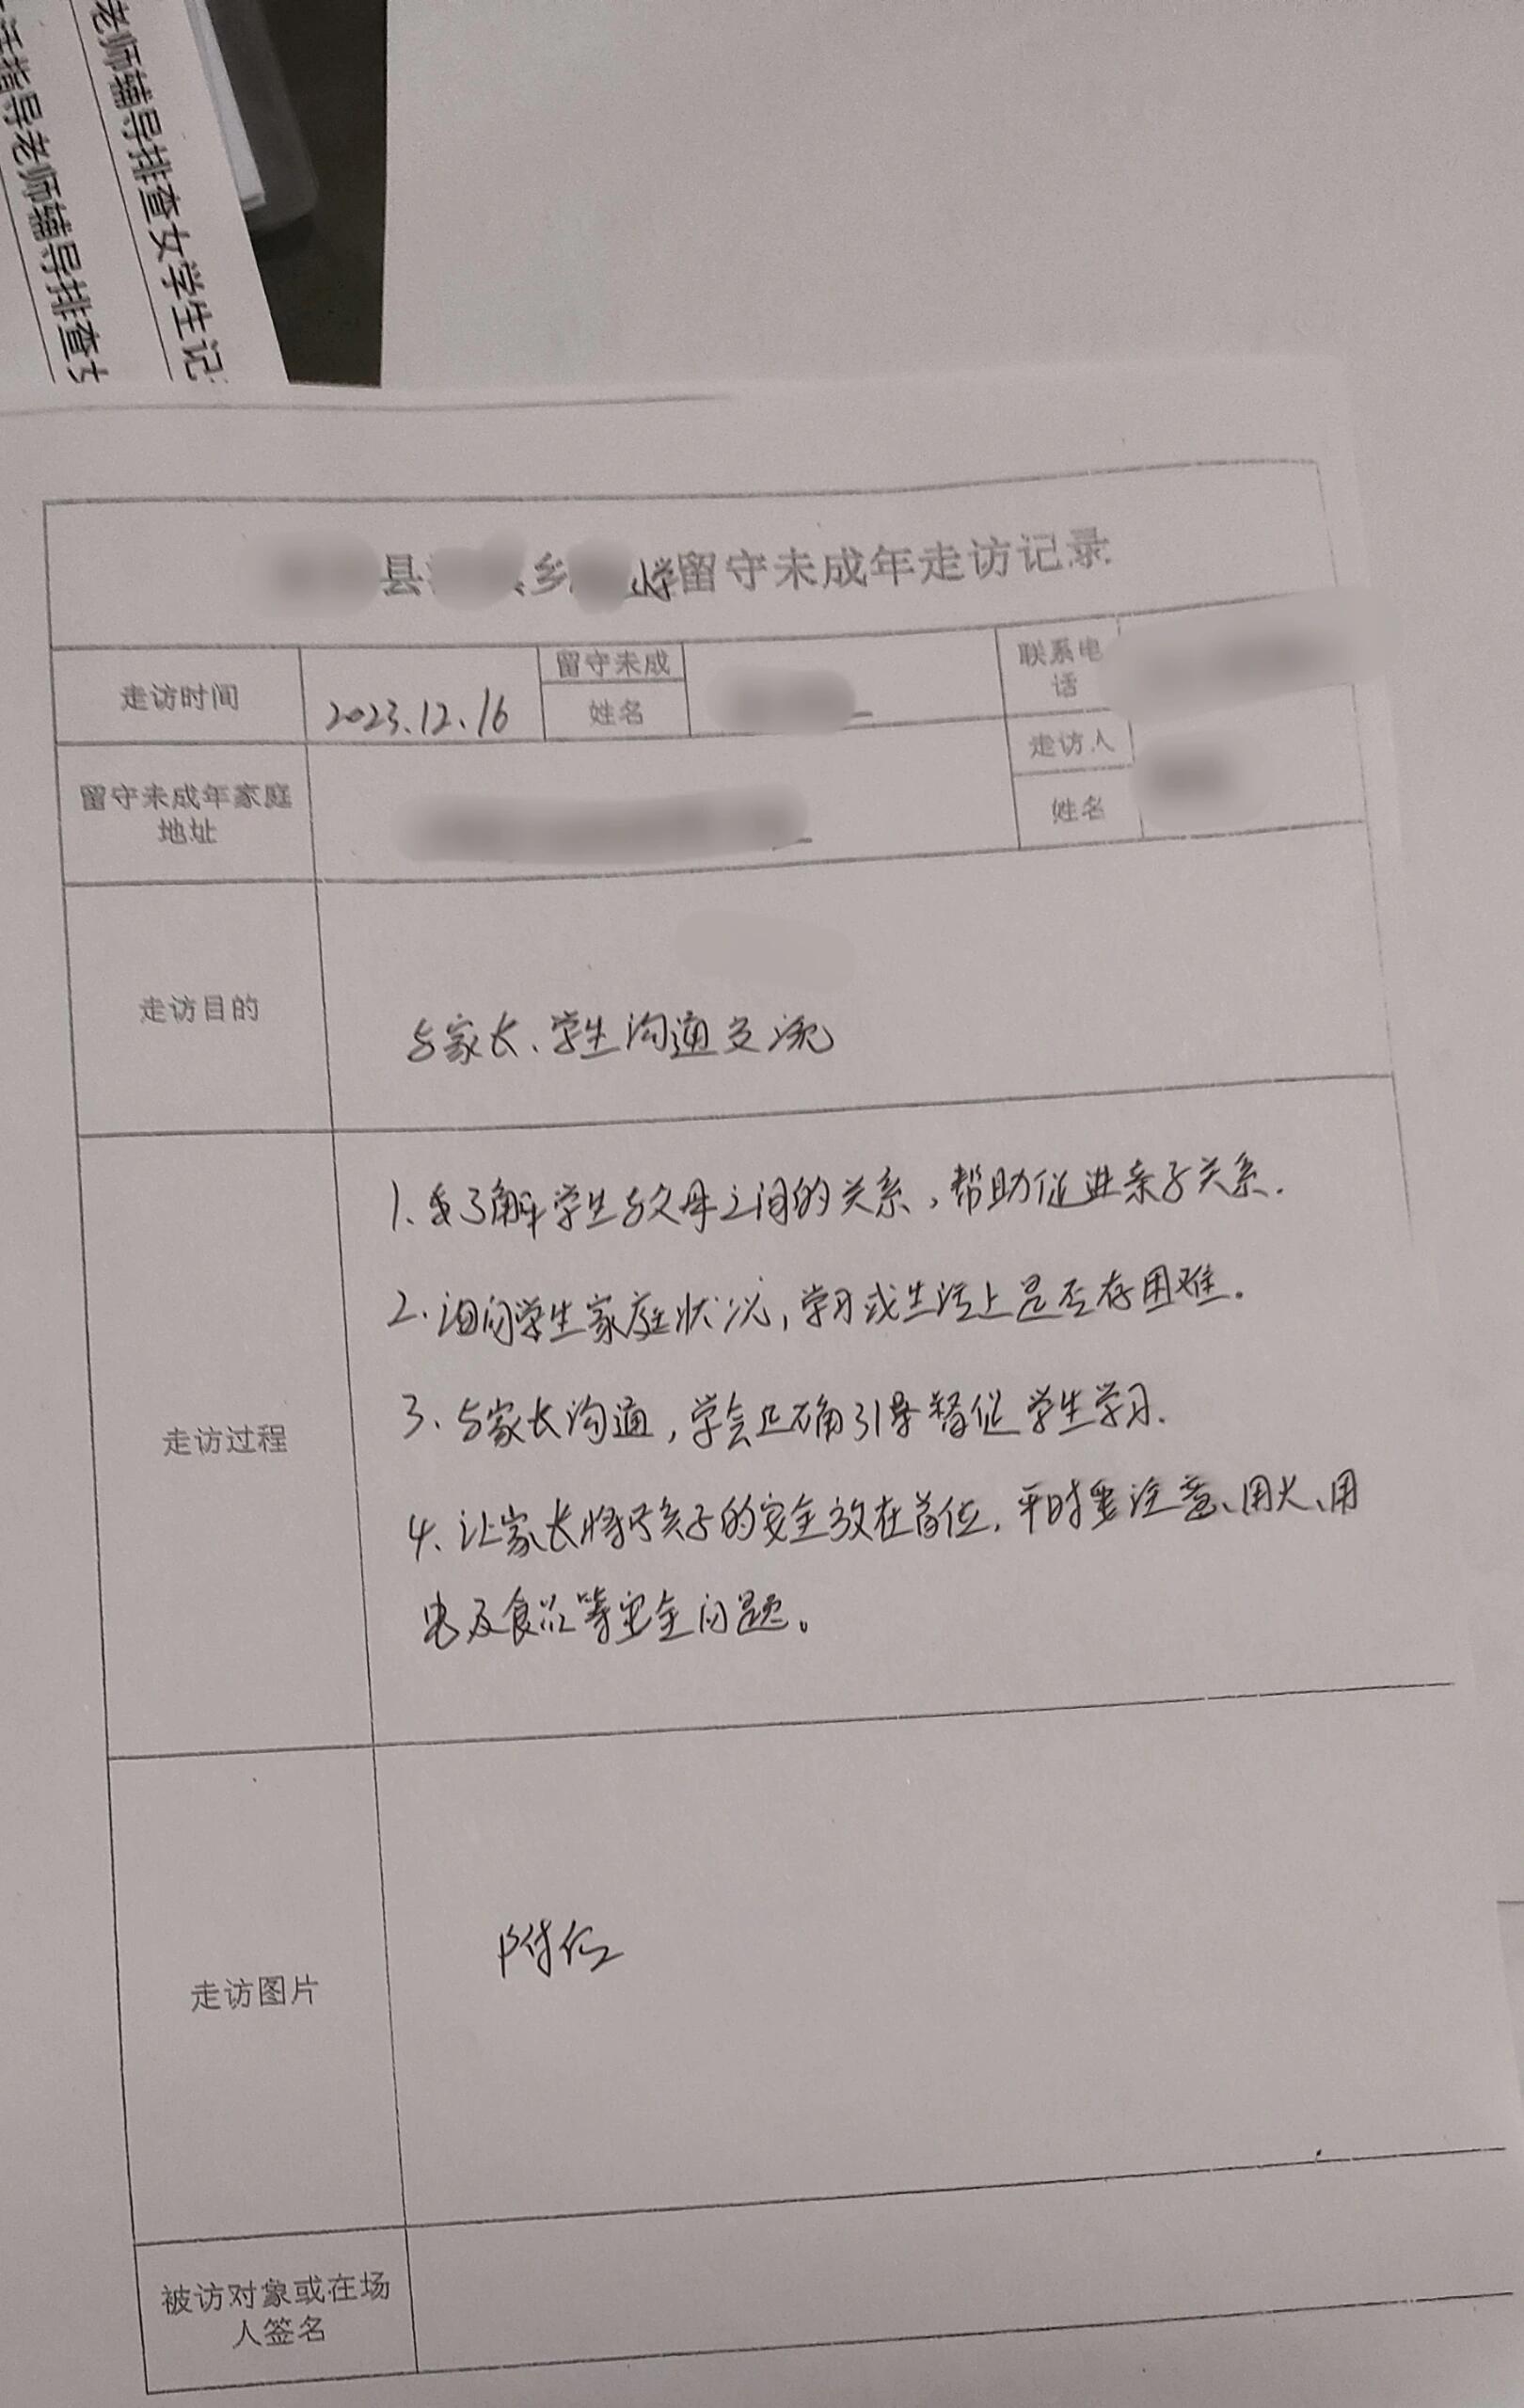 老师辅导排查女学生记
指导老师辅导排查
县 乡 小学留守未成年走访记录
走访时间 2023.12.16 留守未成 姓名 联系电 话
留守未成年家庭 地址 走访人 姓名
走访目的 与家长、学生沟通交流
走访过程
1. 了解学生与父母之间的关系,帮助促进亲子关系.
2. 询问学生家庭状况,学习或生活上是否存困难.
3. 与家长沟通,学会正确引导督促学生学习.
4. 让家长将孩子的安全放在首位,平时要注意、用火、用
电及食品等安全问题。
走访图片 附后
被访对象或在场
人签名